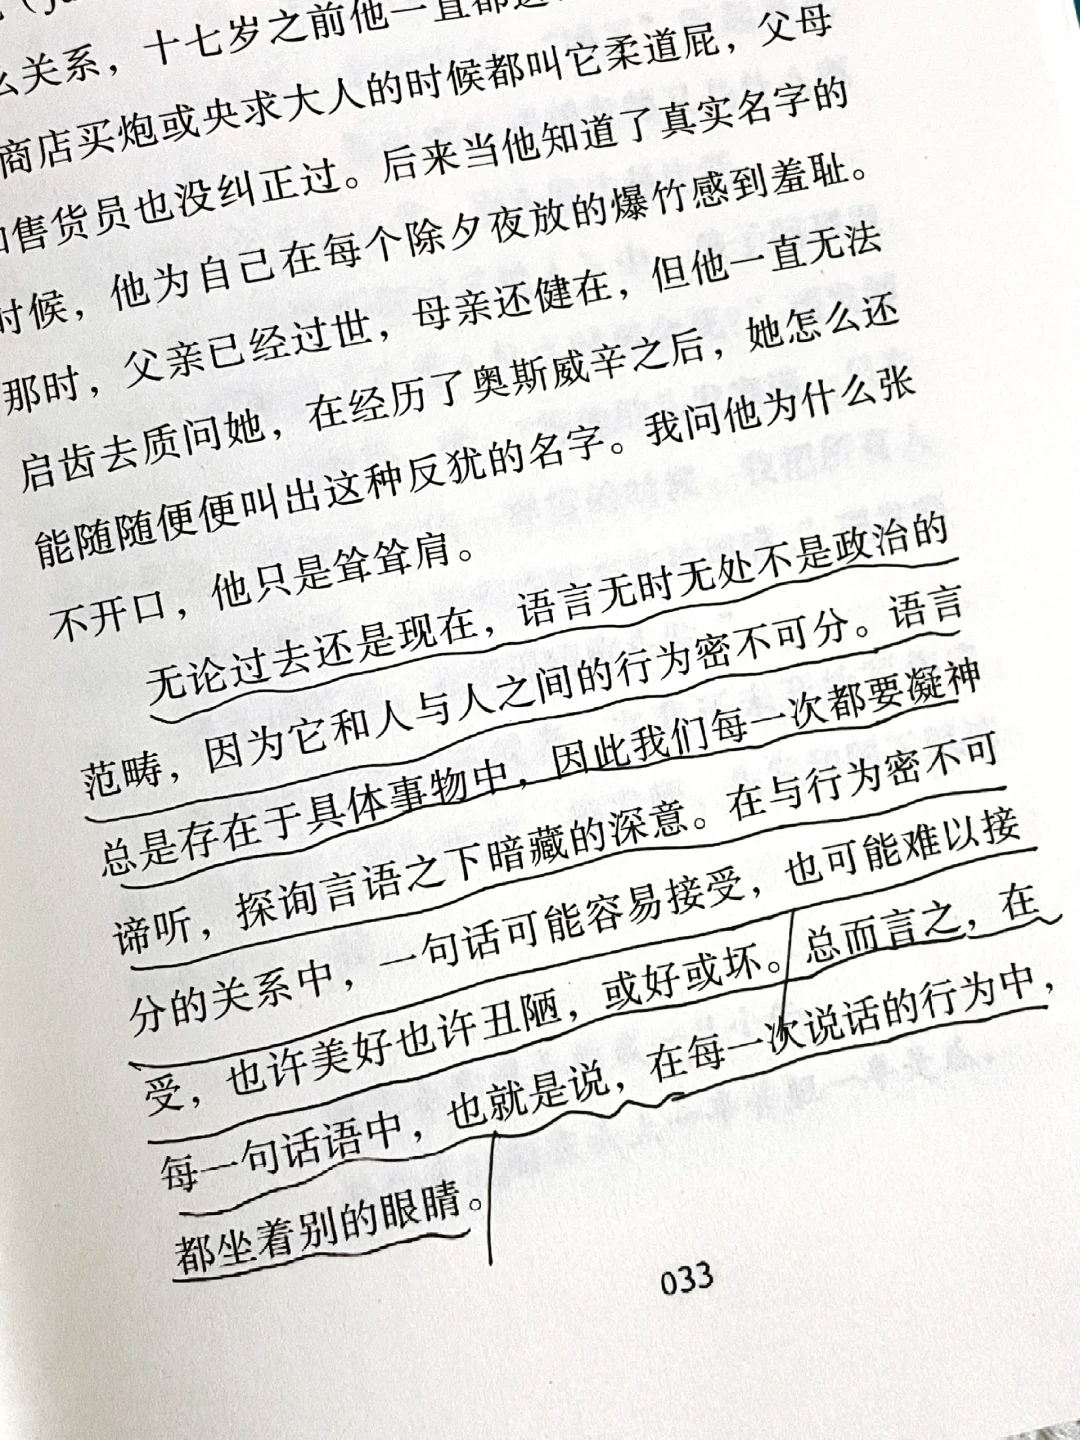 么关系，十七岁之前他一直都这
商店买炮或央求大人的时候都叫它柔道屁，父母
售货员也没纠正过。后来当他知道了真实名字的
时候，他为自己在每个除夕夜放的爆竹感到羞耻。
那时，父亲已经过世，母亲还健在，但他一直无法
启齿去质问她，在经历了奥斯威辛之后，她怎么还
能随随便便叫出这种反犹的名字。我问他为什么张
不开口，他只是耸耸肩。
无论过去还是现在，语言无时无处不是政治的
范畴，因为它和人与人之间的行为密不可分。语言
总是存在于具体事物中，因此我们每一次都要凝神
谛听，探询言语之下暗藏的深意。在与行为密不可
分的关系中，一句话可能容易接受，也可能难以接
受，也许美好也许丑陋，或好或坏。总而言之，在
每一句话语中，也就是说，在每一次说话的行为中，
都坐着别的眼睛。
033